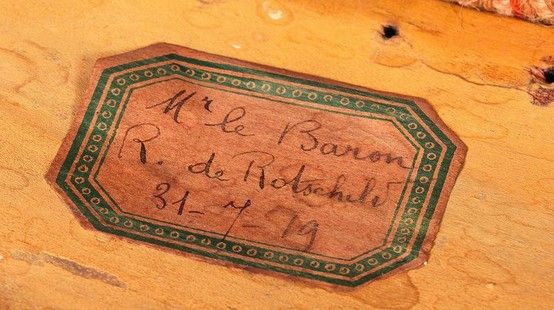 Mr le Baron
R. de Rotschild
31-7-79